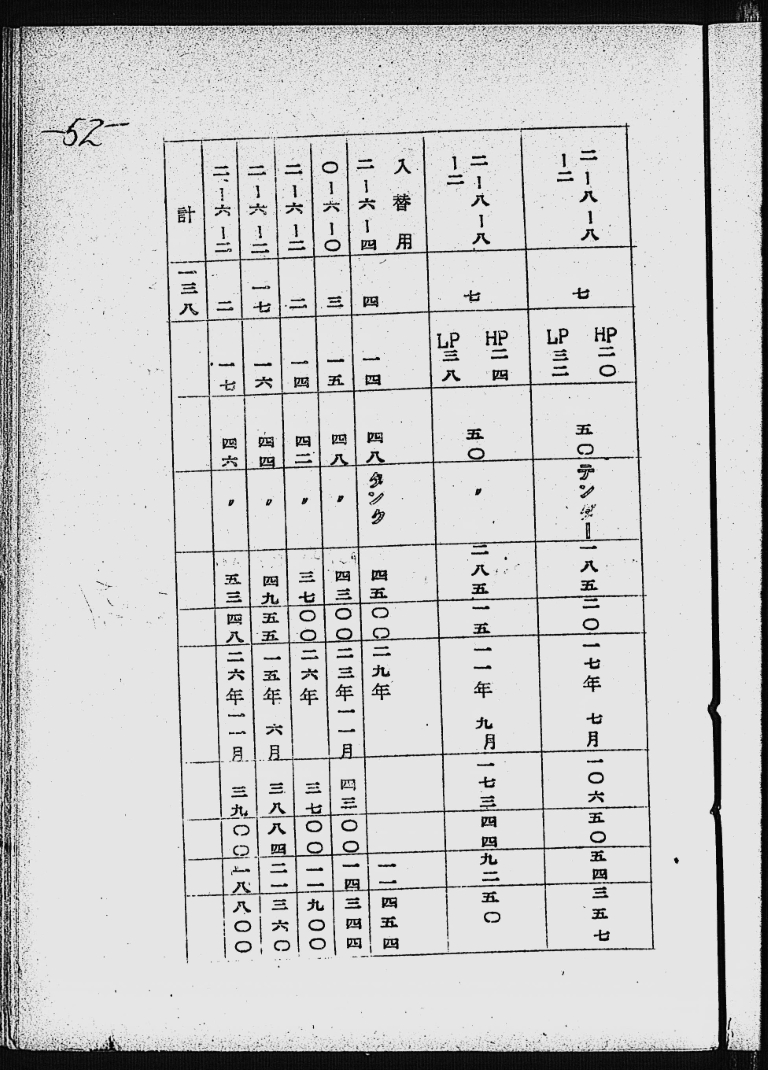 —52—
二—八—八
—二 七 HP二〇
LP三二 五〇 テンダー 一八五 二〇 一七年 七月 一〇六 五〇 五四 三五七
二—八—八
—二 七 HP二四
LP三八 五〇 〃 二八五 一五 一一年 九月 一七三 四四 九二 五〇
入替用
二—六—四 四 一四 四八 タンク 四五 〇〇 二九年 一一 四五四
〇—六—〇 三 一五 四八 〃 四三 〇〇 二三年一一月 四三 〇〇 一四 三四四
二—六—二 二 一四 四二 〃 三七 〇〇 二六年 三七 〇〇 一一 九〇〇
二—六—二 一七 一六 四四 〃 四九 五五 一五年 六月 三八 八四 二一 三六〇
二—六—二 二 一七 四六 〃 五三 四八 二六年一一月 三九 〇〇 一八 八〇〇
計 一三八